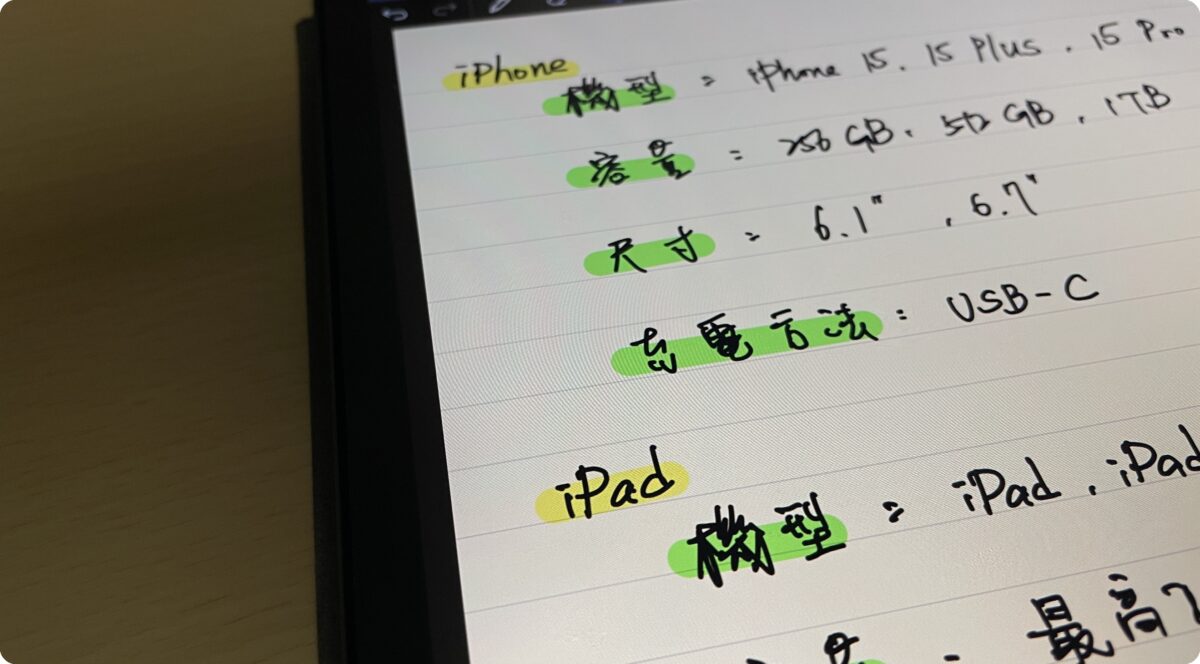 iPhone
機型 : iPhone 15、15 Plus、15 Pro
容量 : 256 GB、512 GB、1TB
尺寸 : 6.1"、6.7"
充電方法 : USB-C
iPad
機型 : iPad、iPad
量 : 最高